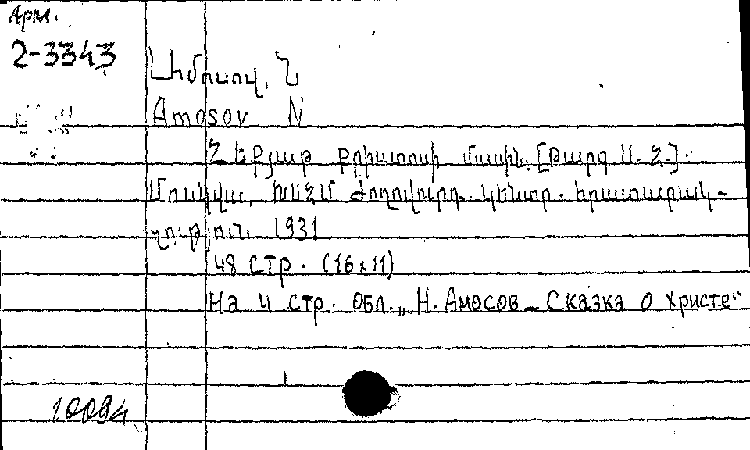 Арм.
2-3343
Ամոսով, Ն
Amosov N
Հեքյաթ Քրիստոսի մասին. [Թարգ. Ա. Հ.]
Մոսկվա, ԽՍՀՄ Ժողովուրդ. Կենտր. Հրատարակ-
չություն. 1931
48 стр. (16x11)
На 4 стр. обл. „Н. Амосов – Сказка о Христе“
10094